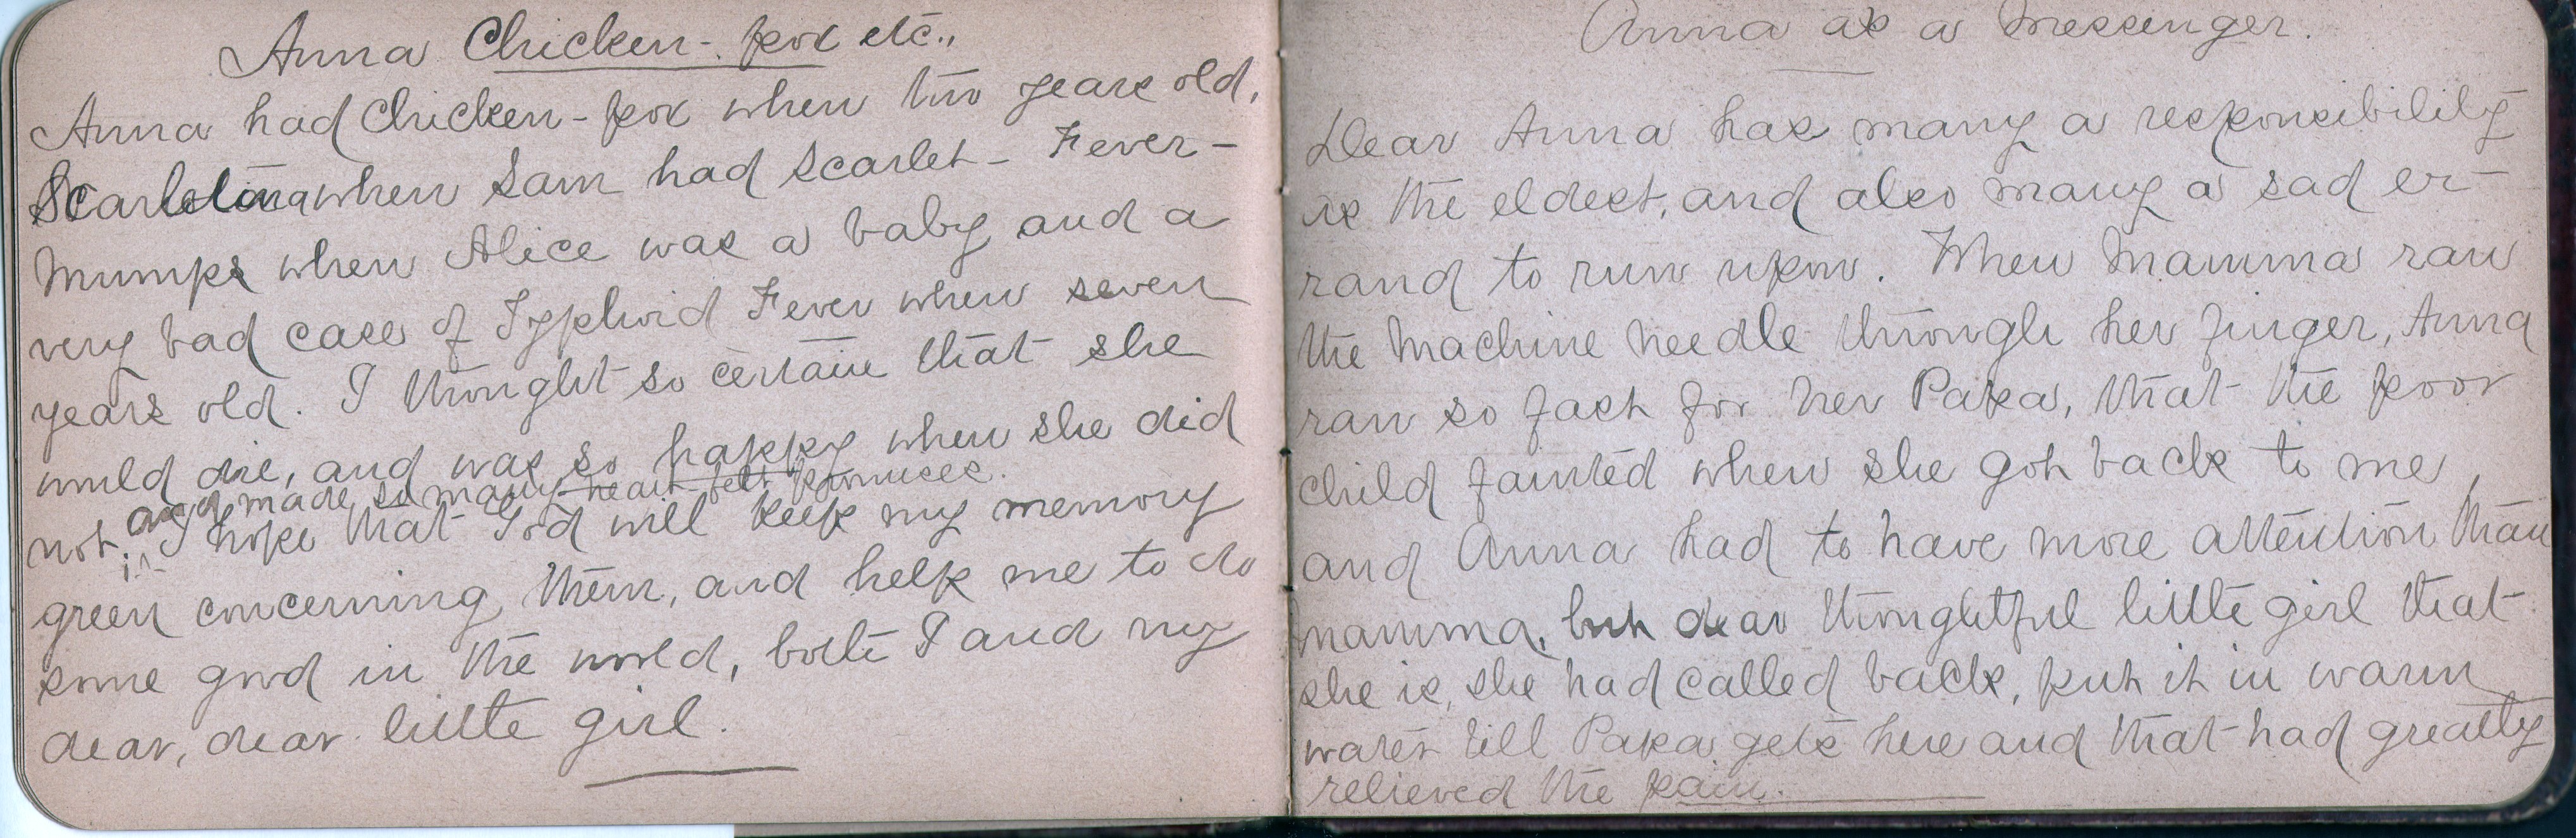 Anna Chicken-pox etc.,
Anna had Chicken-pox when two years old,
Scarletina when Sam had Scarlet-Fever-
Mumps when Alice was a baby and a
very bad case of Typhoid Fever when seven
years old. I thought so certain that she
would die, and was so happy when she did
and made so many heart-felt promises.
not. I hope that God will keep my memory
green concerning them, and help me to do
some good in the world, both I and my
dear, dear little girl.
Anna as a Messenger.
Dear Anna has many a responsibility
as the eldest, and also many a sad er-
rand to run upon. When Mamma ran
the Machine needle through her finger, Anna
ran so fast for her Papa, that the poor
child fainted when she got back to me,
and Anna had to have more attention than
mamma, but dear thoughtful little girl that
she is, she had called back, put it in warm
water till Papa gets here and that had greatly
relieved the pain.